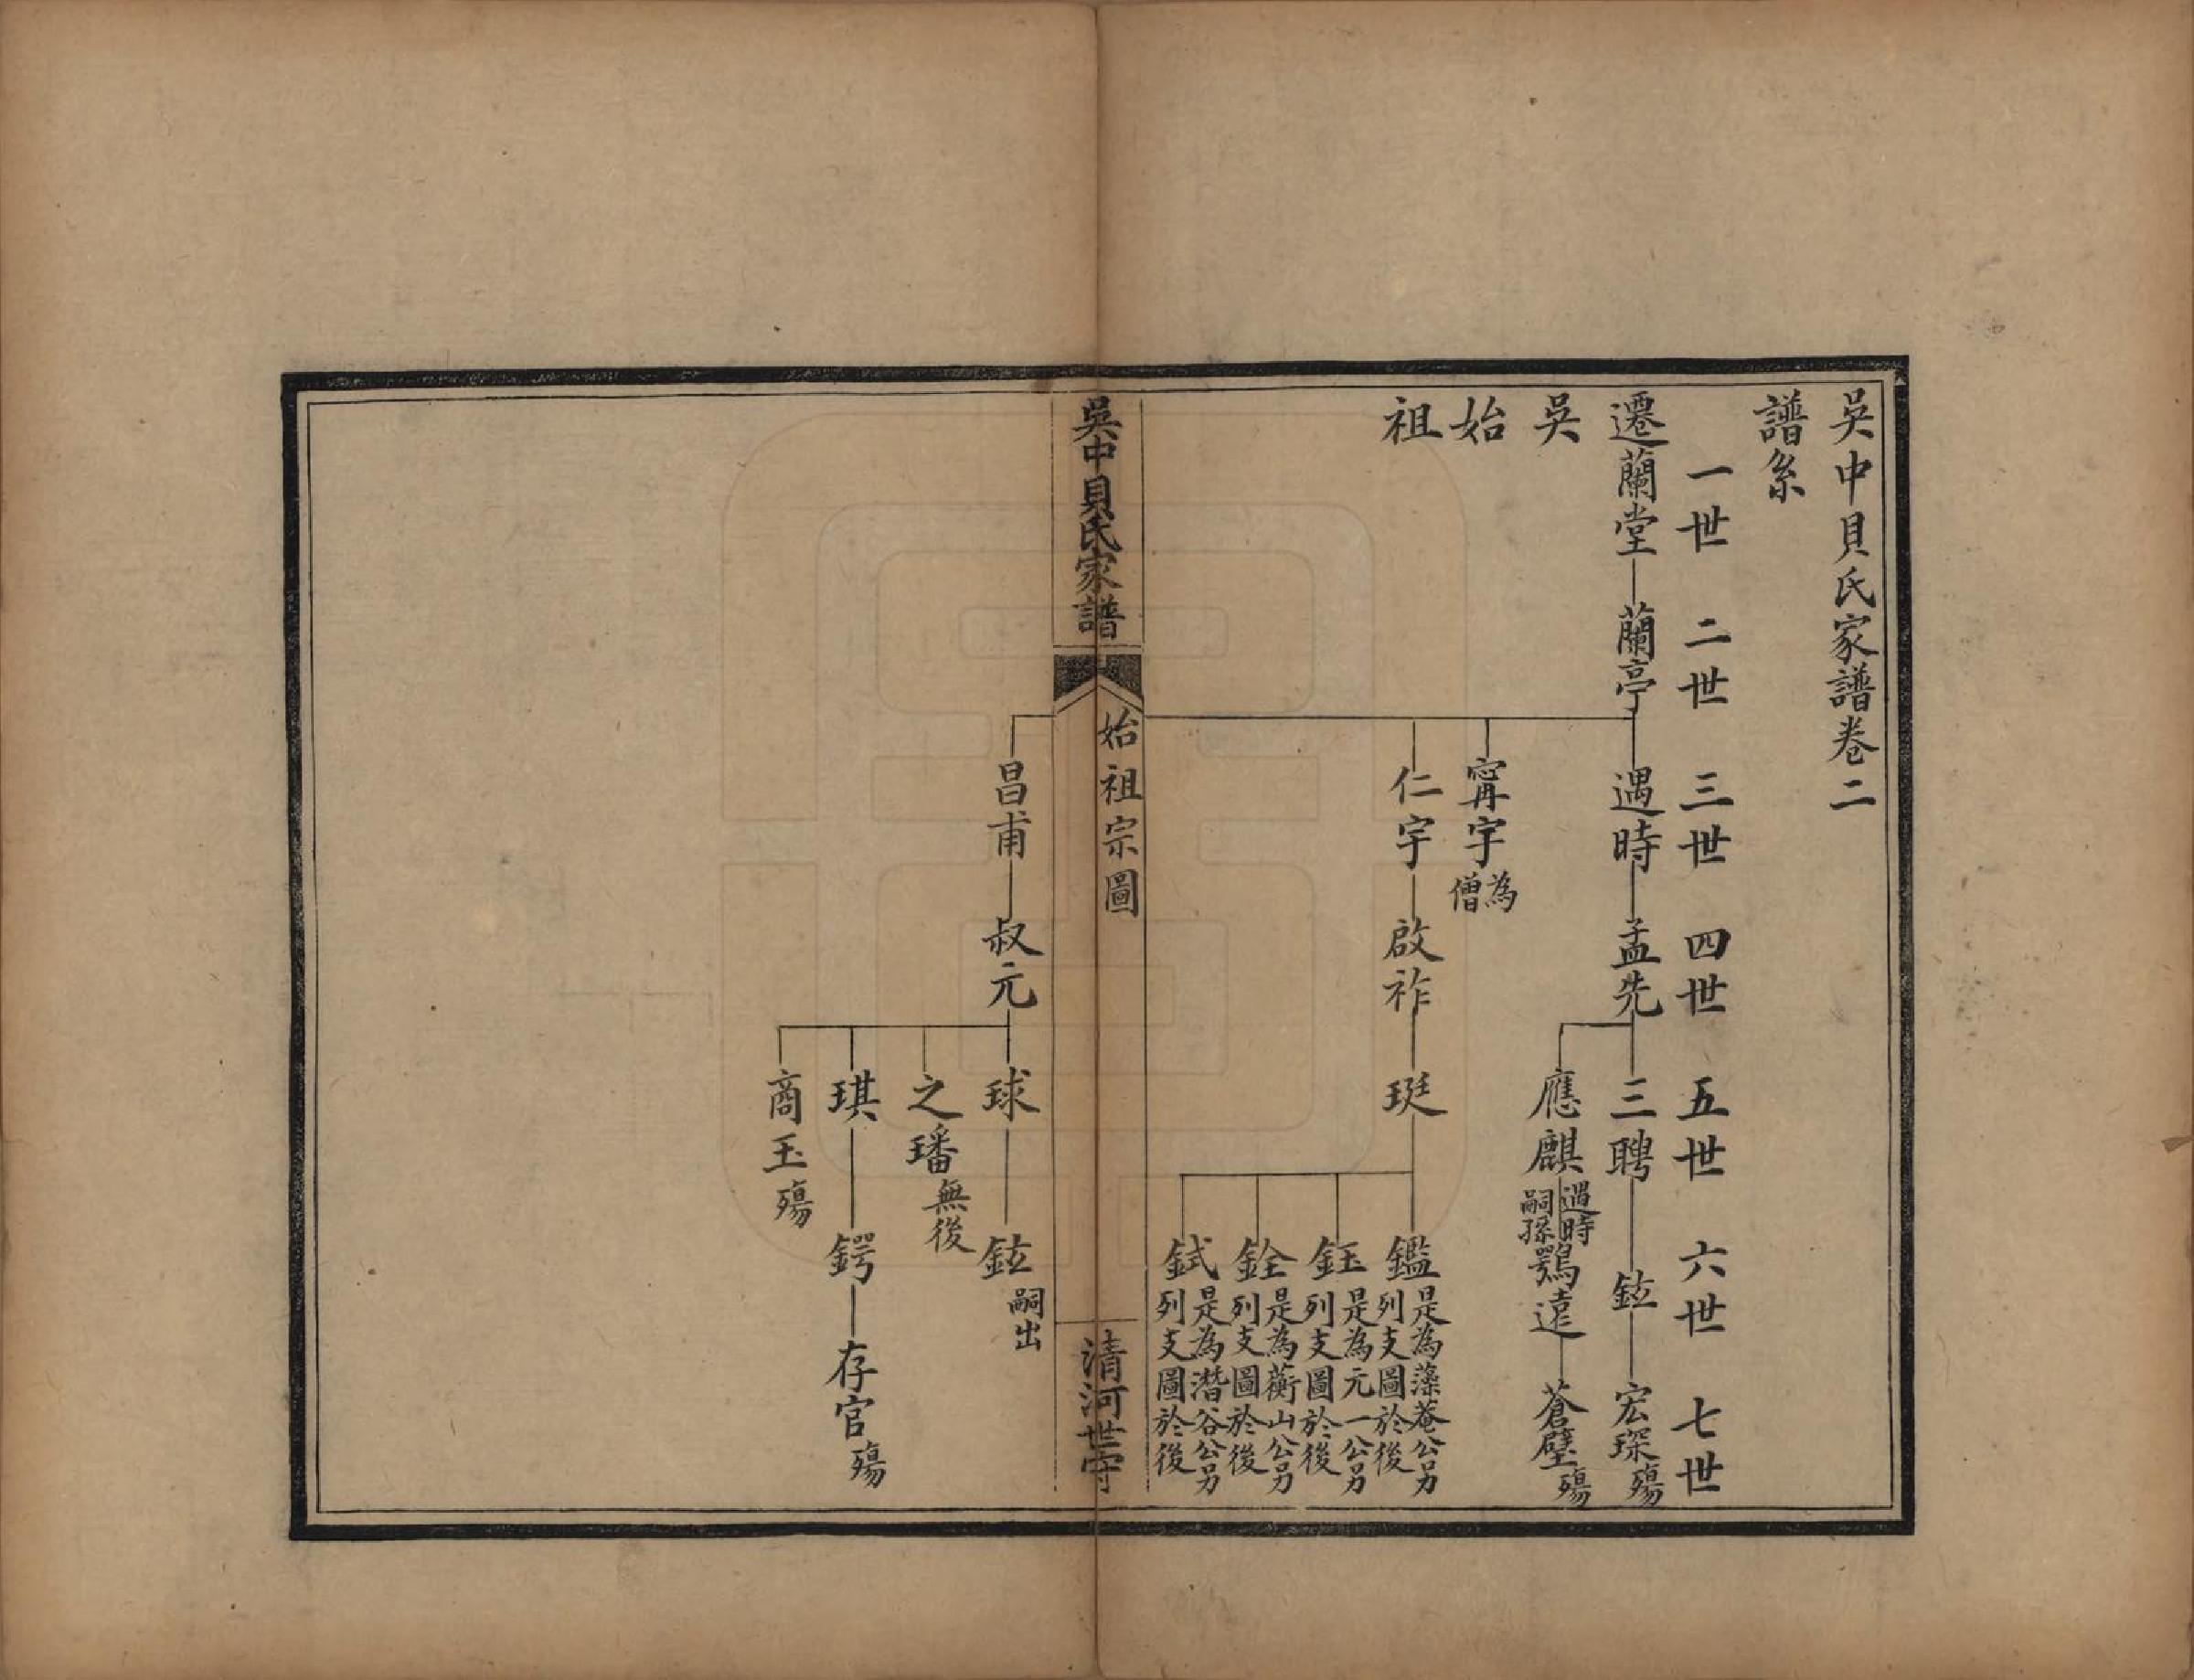 吳中貝氏家譜卷二
譜系
一世 二世 三世 四世 五世 六世 七世
遷蘭堂 蘭亭 遇時 孟先 三聘 鉉 宏琛 殤
吳 應麒 遇時嗣孫 鶚遠 蒼璧 殤
始 甯宇 為僧
祖 仁宇 啟祚 珽 鑑 是為藻菴公另列支圖於後
鈺 是為元一公另列支圖於後
銓 是為蘅山公另列支圖於後
鉽 是為潛谷公另列支圖於後
吳中貝氏家譜 始祖宗圖 清河世守
昌甫 叔元 球 鉉 嗣出
之璠 無後
琪 鍔 存官 殤
商玉 殤